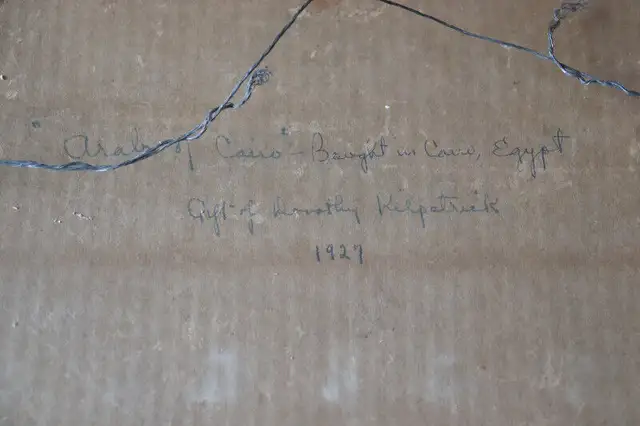 "Arabs of Cairo" - Bought in Cairo, Egypt
Gift of Dorothy Kilpatrick
1927